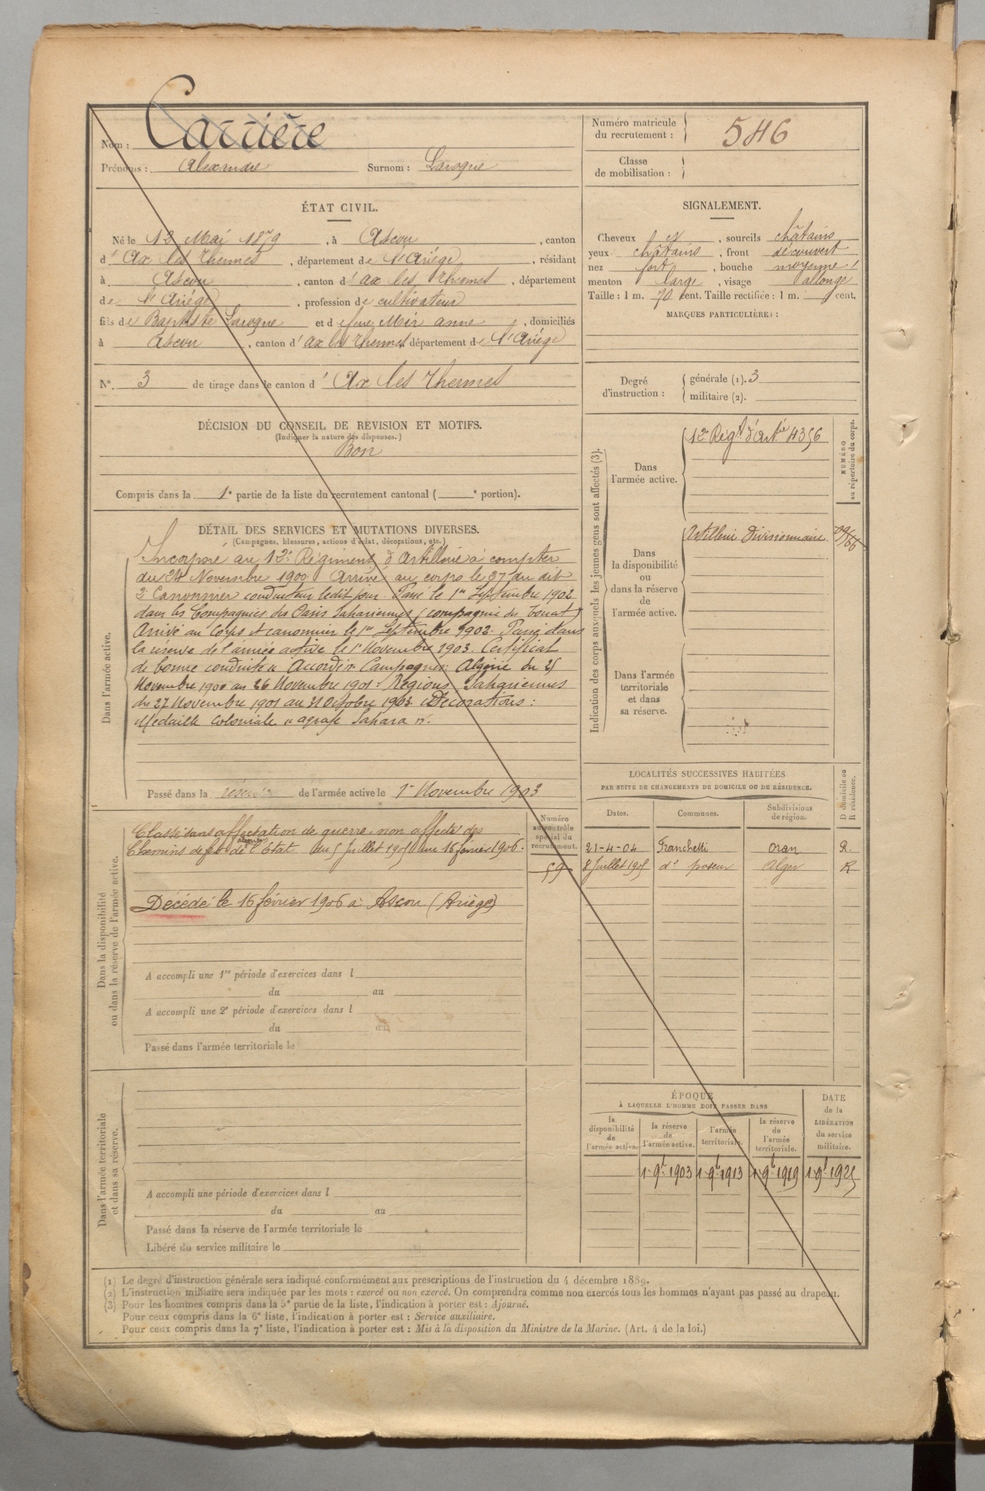 Nom : Carrière
Prénoms : Alexandre Surnom : Laroque
Numéro matricule du recrutement : 546
Classe de mobilisation :
ÉTAT CIVIL.
Né le 12 Mai 1879, à Ascou, canton
d'Ax les Thermes, département de l'Ariège, résidant
à Ascou, canton d'ax les Thermes, département
de l'Ariège, profession de cultivateur
fils de Baptiste Laroque et de feue Mir anne, domiciliés
à Ascou, canton d'ax les Thermes département de l'Ariège
N° 3 de tirage dans le canton d'Ax les Thermes
SIGNALEMENT.
Cheveux , sourcils châtains
yeux châtains, front découvert
nez fort, bouche moyenne
menton large, visage allongé
Taille : 1 m. 70 cent. Taille rectifiée : 1 m. cent.
MARQUES PARTICULIÈRES :
Degré d'instruction : générale (1). 3
militaire (2).
DÉCISION DU CONSEIL DE REVISION ET MOTIFS.
(Indiquer la nature des dispenses.)
Bon
Compris dans la 1e partie de la liste du recrutement cantonal ( e portion).
DÉTAIL DES SERVICES ET MUTATIONS DIVERSES.
(Campagnes, blessures, actions d'éclat, décorations, etc.)
Dans l'armée active.
Incorporé au 12e Régiment d'Artillerie à compter
du 24 Novembre 1900 Arrivé au corps le 27 du dit
2e Canonnier conducteur ledit jour. Passé le 1er Septembre 1902
dans les Compagnies des Oasis Sahariennes (compagnie du Touat)
Arrivé au Corps et canonnier le 1er Septembre 1902. Passé dans
la réserve de l'armée active le 1er Novembre 1903. Certificat
de bonne conduite "Accordé". Campagnes: Algérie du 25
Novembre 1900 au 26 Novembre 1901. Régions Sahariennes
du 27 Novembre 1901 au 31 Octobre 1903 Décorations :
Médaille coloniale "agrafe Sahara".
Passé dans la réserve de l'armée active le 1er Novembre 1903
Indication des corps auxquels les jeunes gens sont affectés (3).
NUMÉRO au répertoire du corps.
Dans l'armée active.
12e Régt d'Artie 4356
Dans la disponibilité ou dans la réserve de l'armée active.
Artillerie Divisionnaire
Dans l'armée territoriale et dans sa réserve.
LOCALITÉS SUCCESSIVES HABITÉES
PAR SUITE DE CHANGEMENTS DE DOMICILE OU DE RÉSIDENCE.
D domicile ou R résidence.
Dates. Communes. Subdivisions de région.
21-4-04 Franchetti Oran R
8 Juillet 1905 Alger R
Dans la disponibilité ou dans la réserve de l'armée active.
Numéro au contrôle spécial du recrutement.
Classé sans affectation de guerre, non affecté des
Chemins de fer de l'Etat du 5 Juillet 1905 au 16 février 1906.
59
Décédé le 16 février 1906 à Ascou (Ariège)
A accompli une 1re période d'exercices dans l
du au
A accompli une 2e période d'exercices dans l
du au
Passé dans l'armée territoriale le
Dans l'armée territoriale et dans sa réserve.
A accompli une période d'exercices dans l
du au
Passé dans la réserve de l'armée territoriale le
Libéré du service militaire le
ÉPOQUE
À LAQUELLE L'HOMME DOIT PASSER DANS
DATE de la LIBÉRATION du service militaire.
la disponibilité de l'armée active.
la réserve de l'armée active.
l'armée territoriale.
la réserve de l'armée territoriale.
1 9bre 1903 1 9bre 1913 1 9bre 1919 1 9bre 1925
(1) Le degré d'instruction générale sera indiqué conformément aux prescriptions de l'instruction du 4 décembre 1889.
(2) L'instruction militaire sera indiquée par les mots : exercé ou non exercé. On comprendra comme non exercés tous les hommes n'ayant pas passé au drapeau.
(3) Pour les hommes compris dans la 5e partie de la liste, l'indication à porter est : Ajourné.
Pour ceux compris dans la 6e liste, l'indication à porter est : Service auxiliaire.
Pour ceux compris dans la 7e liste, l'indication à porter est : Mis à la disposition du Ministre de la Marine. (Art. 4 de la loi.)